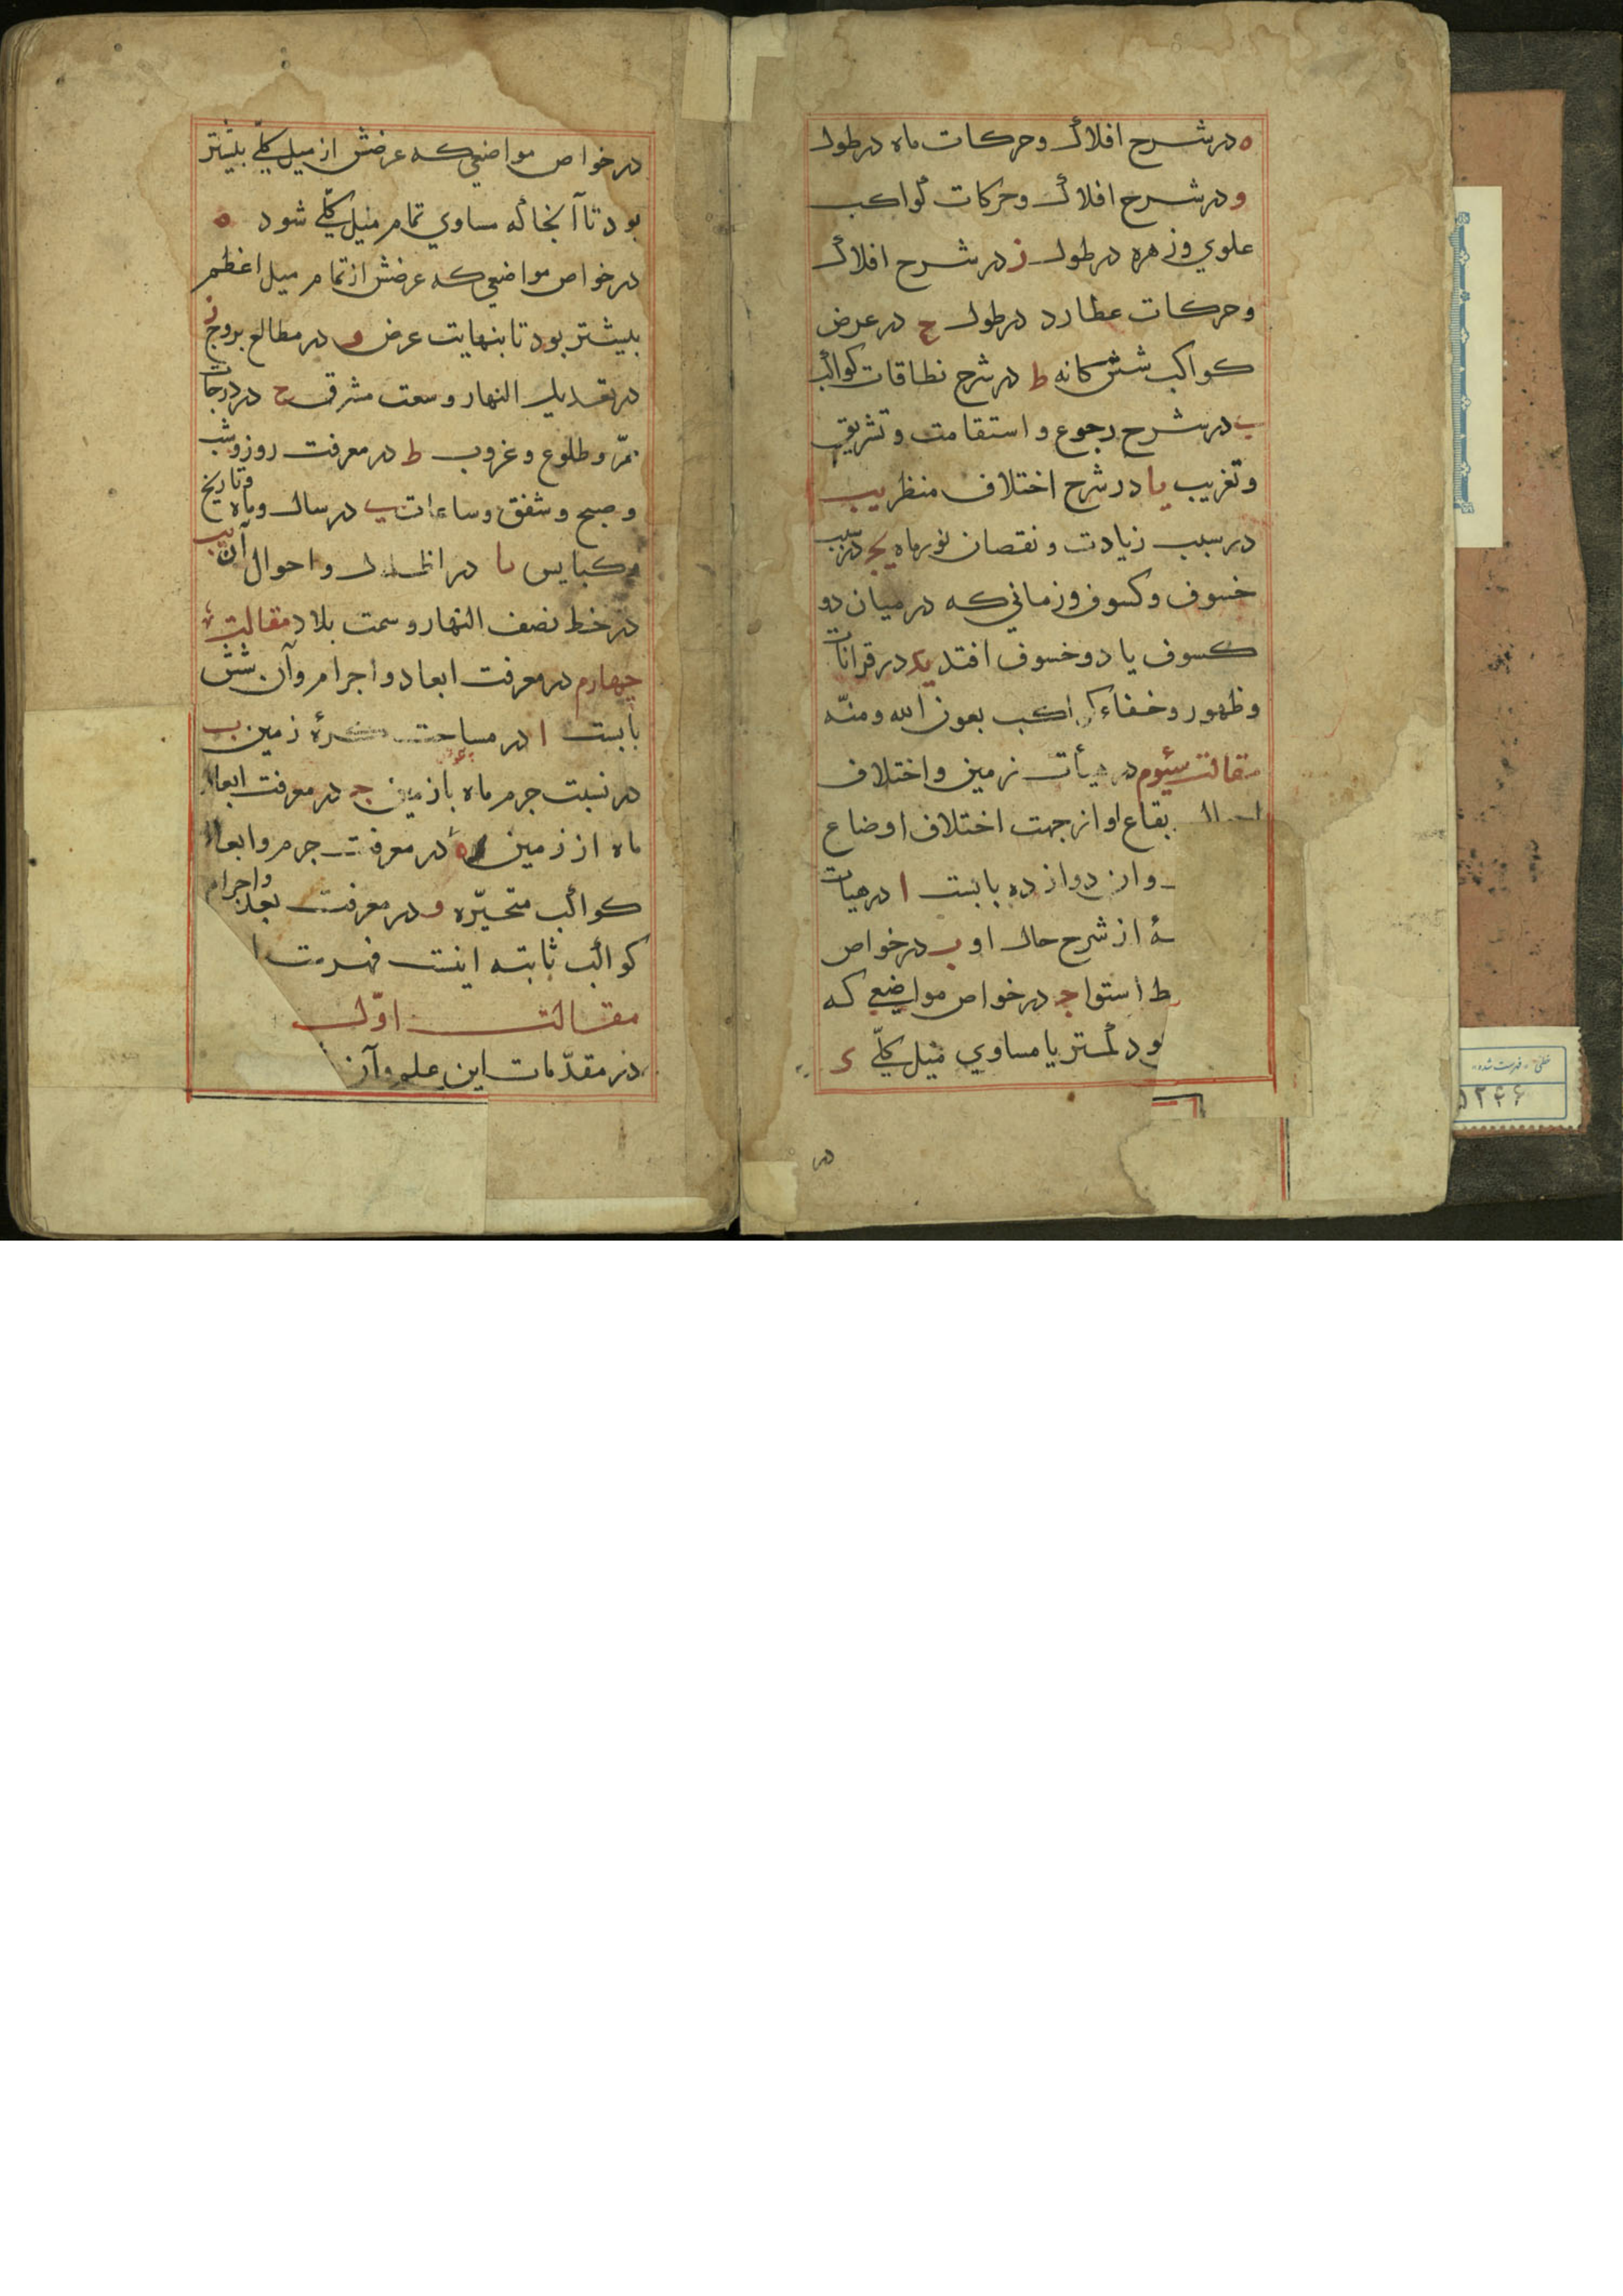 ه در شرح افلاک و حرکات ماه در طول
و در شرح افلاک و حرکات کواکب
علوي و زهره در طول ز در شرح افلاک
و حرکات عطارد در طول ح در عرض
کواکب شش کانه ط در شرح نطاقات کواکب
ي در شرح رجوع و استقامت و تشریق
و تغریب یا در شرح اختلاف منظر یب
در سبب زیادت و نقصان نور ماه یج در سبب
خسوف و کسوف و زماني که در میان دو
کسوف یا دو خسوف افتد ید در قرانات
و ظهور و خفاء کواکب بعون الله و منّه
مقالت سیوم در هیأت زمین و اختلاف
احوال بقاع او از جهت اختلاف اوضاع
وان دوازده بابست ا در هیات
از شرح حال او ب در خواص
ط استوا ج در خواص مواضعي که
ود کمتر یا مساوي میل کلّي د
در
در خواص مواضعي که عرضش از میل کلّي بیشتر
بود تا آنجا که مساوي تمام میل کلّي شود ه
در خواص مواضعي که عرضش از تمام میل اعظم
بیشتر بود تا بنهایت عرض و در مطالع بروج ز
در تعدیل النهار و سعت مشرق ح در درجات
ممرّ و طلوع و غروب ط در معرفت روز و شب
و صبح و شفق و ساعات ي در سال و ماه و تاریخ
و کبایس یا در اظلال و احوال آن یب
در خط نصف النهار و سمت بلاد مقالت
چهارم در معرفت ابعاد و اجرام و آن شش
بابست ا در مساحت کرهٔ زمین ب
در نسبت جرم ماه با زمین ج در معرفت ابعاد
ماه از زمین ه در معرفت جرم و ابعاد
کواکب متحیّره و در معرفت بعد و اجرام
کواکب ثابته اینست فهرست
مقالت اوّل
در مقدّمات این علم و آن
خطی «فهرست شده»
۵۲۴۶